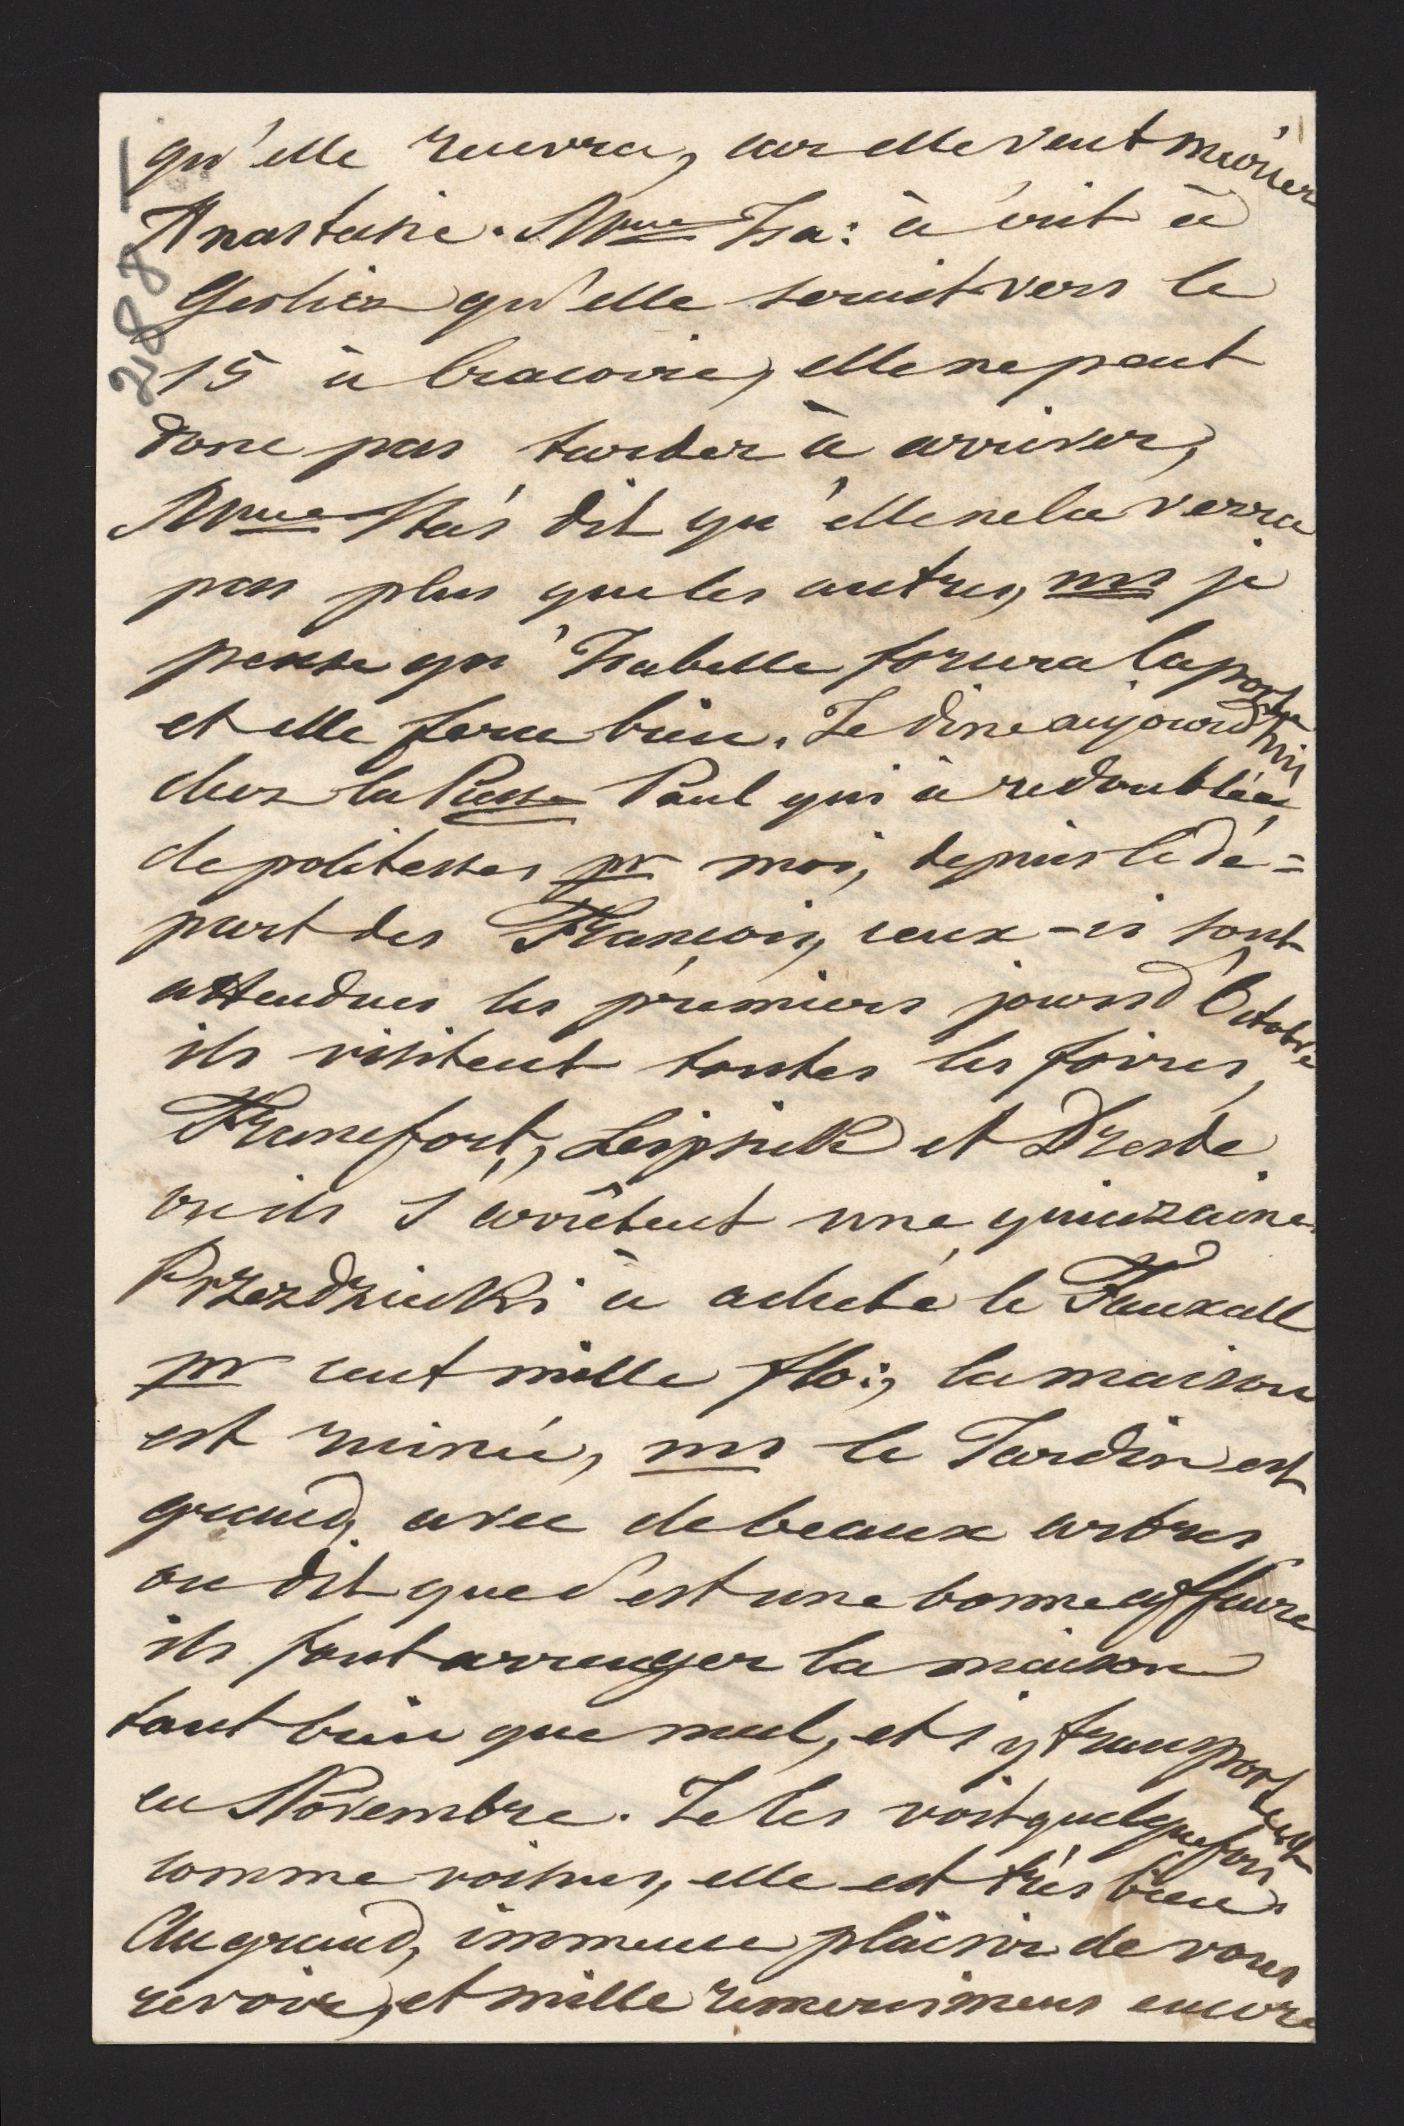 2188
qu'elle recevra, car elle veut marier
Anastasie. Mme Isa: à écrit à
qu'elle serait vers le
15 à Cracovie, elle ne peut
donc pas tarder à arriver,
Mme Stas dit qu'elle ne la verra
pas plus que les autres, ms je
pense qu'Isabelle forcera la porte
et elle fera bien. Je dine aujourd'hui
chez la Psse Paul qui à redoublée
de politesses pr moi, depuis le dé=
part des François, ceux-ci sont
attendues les prémiers jours d'Octobre
ils visitent toutes les foires,
Francfort, Leipsick et Dresde
ou ils s'arrêtent une quinzaine
Przezdziecki a acheté le Fauxall
pr cent mille flo:, la maison
est ruinée, ms le Jardin est
grand, avec de beaux arbres
on dit que c'est une bonne affaire
ils font arranger la maison
tant bien que mal, et s'y transportent
en Novembre. Je les voit quelque fois
comme voisins, elle est très bien.
Au grand, immense plaisir de vous
revoir, et mille remercimens encore